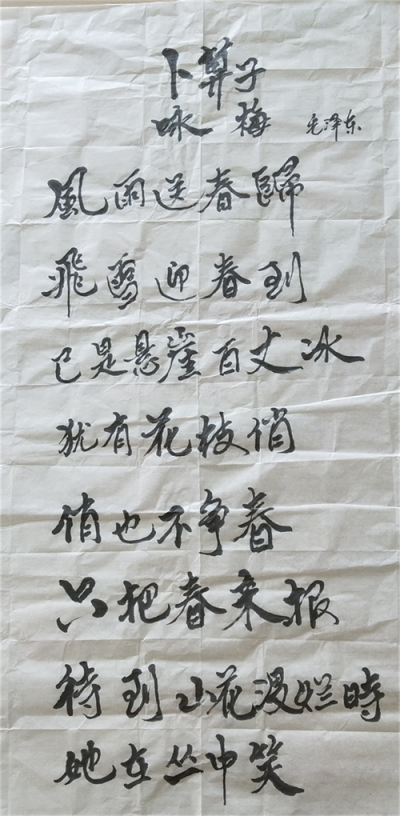 卜算子
咏梅 毛泽东
風雨送春歸
飛雪迎春到
已是悬崖百丈冰
犹有花枝俏
俏也不争春
只把春来报
待到山花漫烂時
她在丛中笑